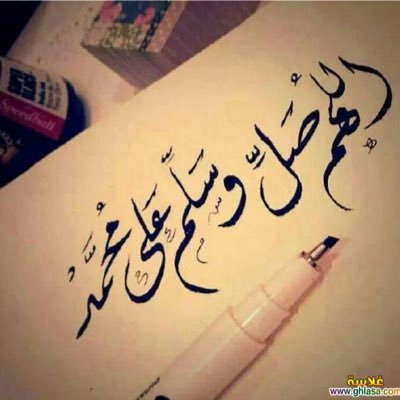 اللهم صَلِّ وسَلِّم عَلى مُحمَّدْ
Speedball
غلاسة
www.ghlasa.com